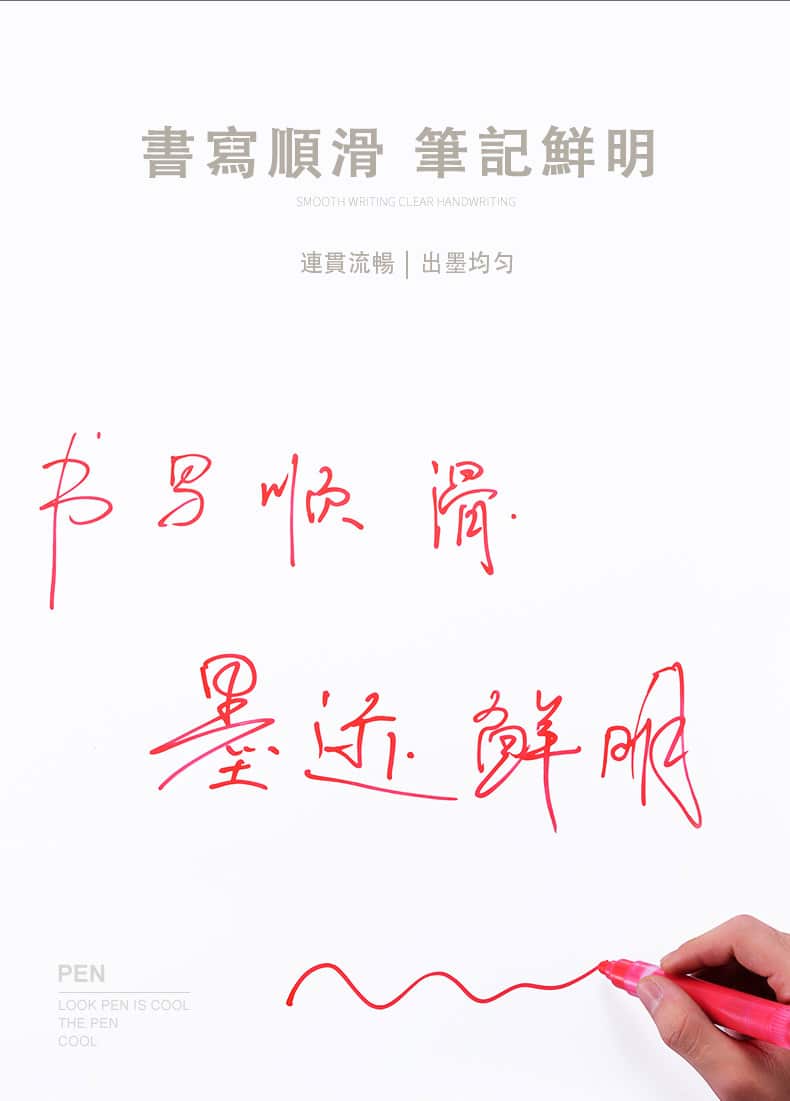 書寫順滑 筆記鮮明
SMOOTH WRITING CLEAR HANDWRITING
連貫流暢 | 出墨均勻
书写顺滑.
墨迹鲜明
PEN
LOOK PEN IS COOL
THE PEN
COOL